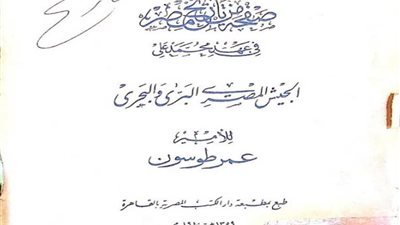 صفحة من تاريخ مصر
في عهد محمد علي
الجيش المصرى البرّى والبحرى
للأمير
عمر طوسون
طبع بمطبعة دار الكتب المصرية بالقاهرة